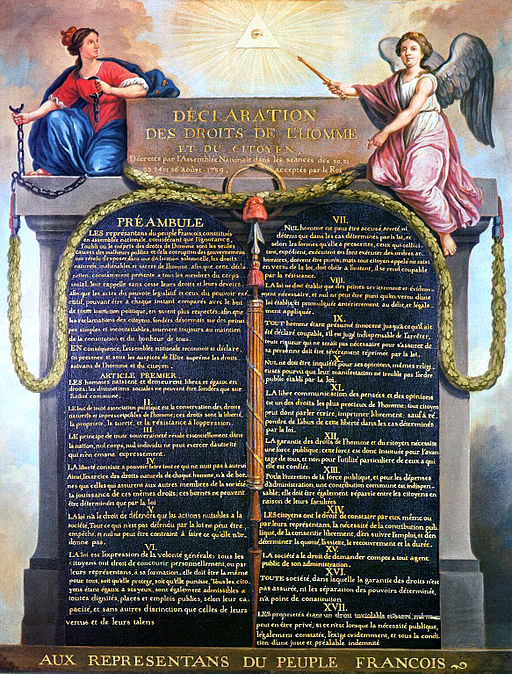 DÉCLARATION
DES DROITS DE L'HOMME
ET DU CITOYEN
Décretés par l'Assemblée Nationale dans les séances des 20, 21
23, 24 et 26 août 1789, Acceptés par le Roi
PRÉAMBULE
LES représentans du peuple François, constitués
en assemblée nationale, considérant que l'ignorance,
l'oubli ou le mépris des droits de l'homme sont les seules
causes des malheurs publics et de la corruption des gouvernemens
ont résolu d'exposer dans une déclaration solemnelle, les droits
naturels, inaliénables et sacrés de l'homme; afin que cette décla
ration, constamment présente à tous les membres du corps
social, leur rappelle sans cesse leurs droits et leurs devoirs;
afin que les actes du pouvoir législatif et ceux du pouvoir exé
cutif, pouvant être à chaque instant comparés avec le but
de toute institution politique, en soient plus respectés; afin que
les réclamations des citoyens, fondées désormais sur des princi
pes simples et incontestables, tournent toujours au maintien
de la constitution et du bonheur de tous.
EN conséquence, l'assemblée nationale reconnoit et déclare
en présence et sous les auspices de l'Être suprême les droits
suivans de l'homme et du citoyen.
ARTICLE PREMIER.
LES hommes naissent et demeurent libres et égaux en
droits; les distinctions sociales ne peuvent être fondées que sur
l'utilité commune.
II.
LE but de toute association politique est la conservation des droits
naturels et imprescriptibles de l'homme; ces droits sont la liberté,
la propriété, la sureté, et la résistance à l'oppression.
III.
LE principe de toute souveraineté réside essentiellement dans
la nation, nul corps, nul individu ne peut exercer d'autorité
qui n'en émane expressement.
IV.
LA liberté consiste à pouvoir faire tout ce qui ne nuit pas à autrui
Ainsi, l'exercice des droits naturels de chaque homme, n'a de bor
nes que celles qui assurent aux autres membres de la société
la jouissance de ces mêmes droits; ces bornes ne peuvent
être déterminées que par la loi
V.
LA loi n'a le droit de défendre que les actions nuisibles à la
société. Tout ce qui n'est pas défendu par la loi ne peut être
empêché, et nul ne peut être contraint à faire ce qu'elle n'or
donne pas.
VI.
LA loi est l'expression de la volonté générale; tous les
citoyens ont droit de concourir personnellement, ou par
leurs représentans, à sa formation; elle doit être la même
pour tous, soit qu'elle protege, soit qu'elle punisse. Tous les cito
yens étant égaux à ses yeux, sont également admissibles à
toutes dignités, places et emplois publics, selon leur ca
pacité, et sans autres distinction que celles de leurs
vertus et de leurs talens
VII.
NUL homme ne peut être accusé, arreté, ni
détenu que dans les cas déterminés par la loi, et
selon les formes qu'elle a prescrites, ceux qui sollici
tent, expédient, exécutent ou font exécuter des ordres ar
bitraires, doivent être punis; mais tout citoyen appelé ou saisi
en vertu de la loi, doit obéir à l'instant, il se rend coupable
par la résistance.
VIII.
LA loi ne doit établir que des peines strictement et évidem
ment nécessaire, et nul ne peut être puni qu'en vertu d'une
loi établie et promulguée antérieurement au délit, et légale
ment appliquée.
IX.
TOUT homme étant présumé innocent jusqu'à ce qu'il ait
été déclaré coupable, s'il est jugé indispensable de l'arrêter,
toute rigueur qui ne serait pas nécessaire pour s'assurer de
sa personne doit être sévérement réprimée par la loi.
X.
NUL ne doit être inquiété pour ses opinions, mêmes religi
euses pourvu que leur manifestation ne trouble pas l'ordre
public établi par la loi.
XI.
LA libre communication des pensées et des opinions
est un des droits les plus precieux de l'homme; tout citoyen
peut donc parler écrire, imprimer librement; sauf à ré
pondre de l'abus de cette liberté dans les cas déterminés
par la loi.
XII.
LA garantie des droits de l'homme et du citoyen nécessite
une force publique; cette force est donc instituée pour l'avan
tage de tous, et non pour l'utilité particulière de ceux à qui
elle est confiée.
XIII.
POUR l'entretien de la force publique, et pour les dépenses
d'administration, une contribution commune est indispen
sable; elle doit être également répartie entre les citoyens en
raison de leurs facultées
XIV.
LES citoyens ont le droit de constater par eux même ou
par leurs représentans, la nécessité de la contribution pub
lique, de la consentir librement, d'en suivre l'emploi, et d'en
déterminer la quotité, l'assiette, le recouvrement et la durée.
XV.
LA société a le droit de demander compte à tout agent
public de son administration.
XVI.
TOUTE société, dans laquelle la garantie des droits n'est
pas assurée, ni les séparation des pouvoirs déterminée,
n'a point de constitution
XVII.
LES proprietés étant un droit inviolable et sacré, nul ne
peut en être privé, si ce n'est lorsque la nécessité publique,
légalement constatée, l'exige evidemment, et sous la condi
tion d'une juste et, préalable indemnité
AUX REPRESENTANS DU PEUPLE FRANCOIS